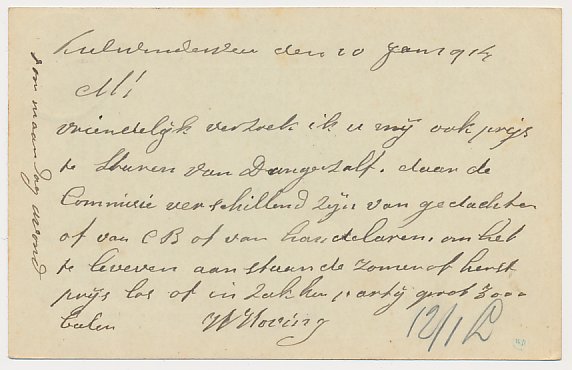 den 10 Jan 1914
M!
vriendelijk verzoek ik u mij ook prijs
te sturen van daar de
Commisie verschillend zijn van gedachten
of van CB of van handelaren. om het
te leveren aanstaande zomer of herst
prijs los of in zakken partij groot 300
balen W Hoving
12/1
voor maandag avond